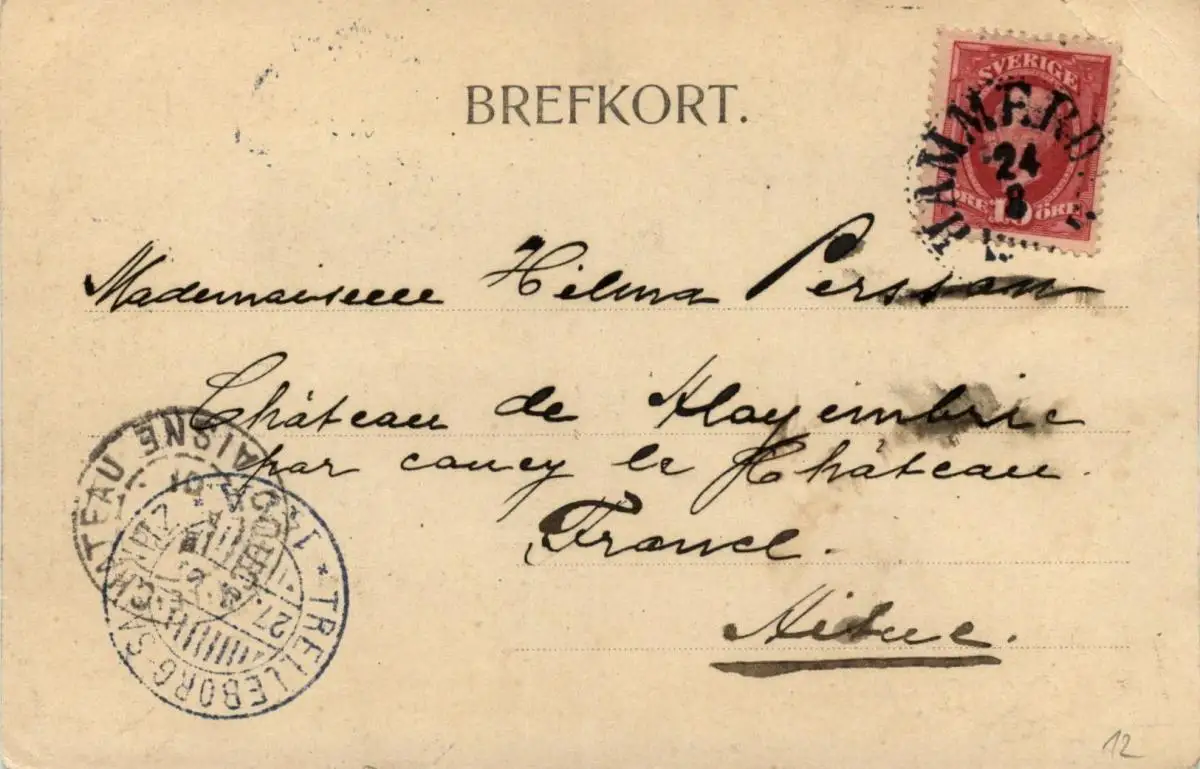 BREFKORT.
SVERIGE
10
ÖRE ÖRE
HAMMERD
24
8
Mademoiselle Hilma Persson
Château de Moyembrie
par Coucy le Château.
France.
Aisne.
COUCY CHATEAU AISNE
TRELLEBORG-SASSNITZ 1
27.
12